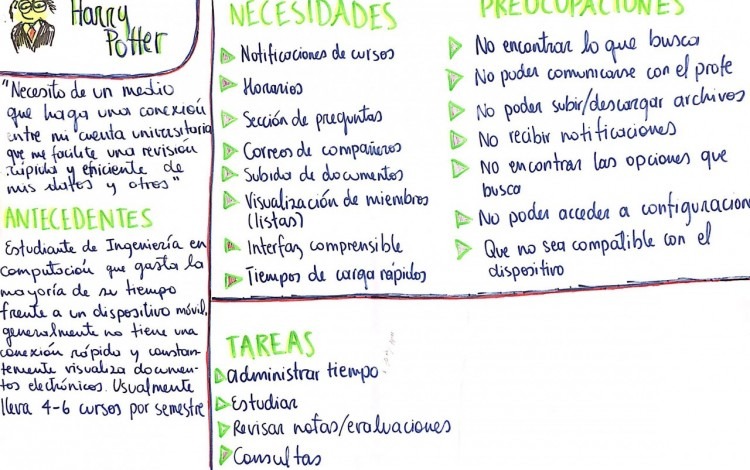 Harry
Potter
"Necesito de un medio
que haga una conexión
entre mi cuenta universitaria
que me facilite una revisión
rápida y eficiente de
mis datos y otros"
ANTECEDENTES
Estudiante de Ingeniería en
computación que gasta la
mayoría de su tiempo
frente a un dispositivo móvil,
generalmente no tiene una
conexión rápido y constan-
temente visualiza documen-
tos electrónicos. Usualmente
lleva 4-6 cursos por semestre
NECESIDADES
Notificaciones de cursos
Horarios
Sección de preguntas
Correos de compañeros
Subida de documentos
Visualización de miembros
(listas)
Interfaz comprensible
Tiempos de carga rápidos
PREOCUPACIONES
No encontrar lo que busca
No poder comunicarse con el profe
No poder subir/descargar archivos
No recibir notificaciones
No encontrar las opciones que
busca
No poder acceder a configuracion
Que no sea compatible con el
dispositivo
TAREAS
administrar tiempo
Estudiar
Revisar notas/evaluaciones
Consultas